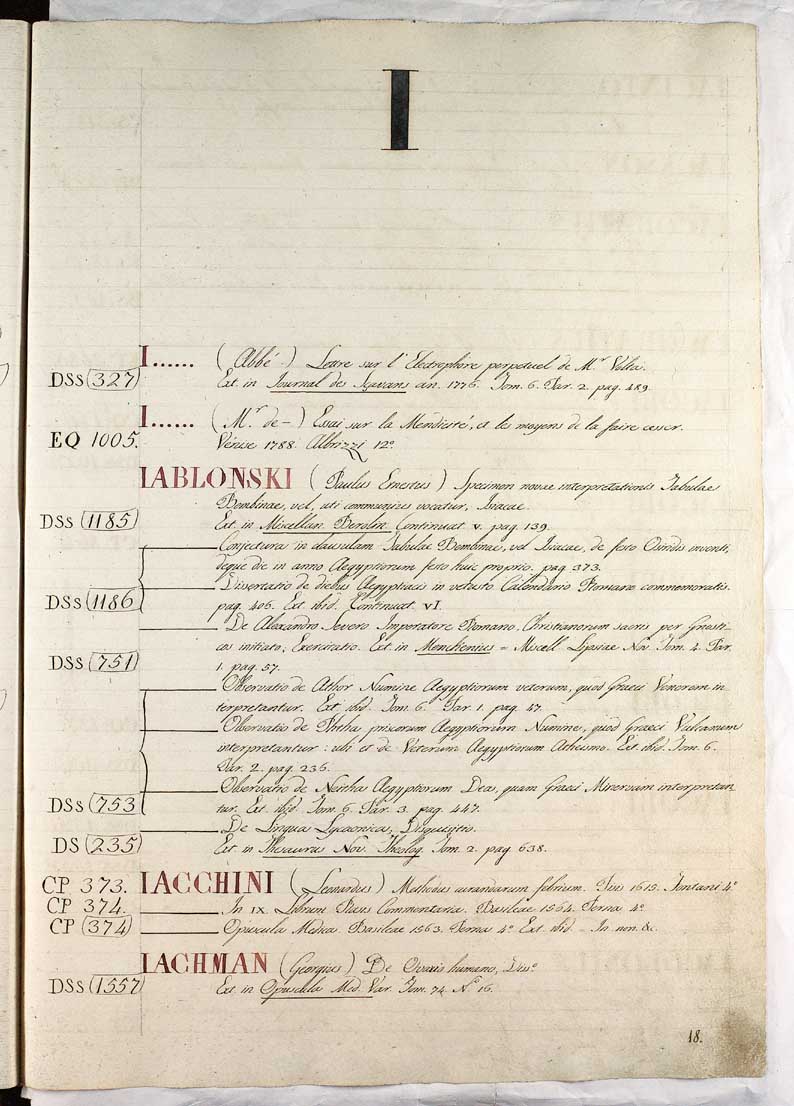 I
I...... ( Abbé - ) Lettre sur l' Electrophore perpetuel de M.r Volta.
DSS (327) Ext. in Journal des Sçavans an. 1776. Tom. 6. Par. 2. pag. 489.
I...... ( M.r de - ) Essai sur la Mendicité, et les moyens de la faire cesser.
EQ 1005. Vénise 1788. Albrizzi 12.o
IABLONSKI ( Paulus Ernestus ) Specimen novae interpretationis Tabulae
Bembinae, vel, uti communius vocatur, Isiacae.
DSS (1185) Ext. in Miscellan. Berolin. Continuat. V. pag. 139.
Conjectura in clausulam Tabulae Bembinae, vel Isiacae, de festo Osiridis inventi,
deque die in anno Aegyptiorum festo huic proprio. pag. 373.
Dissertatio de diebus Aegyptiacis in vetusto Calendario Romano commemoratis.
DSS (1186) pag. 406. Ext. ibid. Continuat. VI.
De Alexandro Severo Imperatore Romano Christianorum sacris per Gnosti-
cos initiato, Exercitatio. Ext. in Menckenius = Miscell. Lipsiae Nov. Tom. 4. Par.
DSS (751) 1. pag. 57.
Observatio de Athor Numine Aegyptiorum veterum, quod Graeci Venerem in-
terpretantur. Ext. ibid. Tom. 6. Par. 1. pag. 47.
Observatio de Phtha priscorum Aegyptiorum Numine, quod Graeci Vulcanum
interpretantur : ubi et de Veterum Aegyptiorum Atheismo. Ext. ibid. Tom. 6.
Par. 2. pag. 236.
Observatio de Neitha Aegyptiorum Dea, quam Graeci Minervam interpretan-
DSS (753) tur. Ext. ibid. Tom. 6. Par. 3. pag. 447.
De Lingua Lycaonica, Disquisitio.
DS (235) Ext. in Thesaurus Nov. Theolog. Tom. 2. pag. 638.
CP 373. IACCHINI ( Leonardus ) Methodus curandarum febrium. Pisis 1615. Fontani 4.o
CP 374. In IX. Librum Rasis Commentaria. Basileae 1564. Perna 4.o
CP (374) Opuscula Medica Basileae 1563. Perna 4.o Ext. ibid. - In non. &c.
IACHMAN (Georgius) De Ovariis humano, Diss.o
DSS (1557) Ext. in Opuscula Med. Var. Tom. 74. N.o 16.
18.